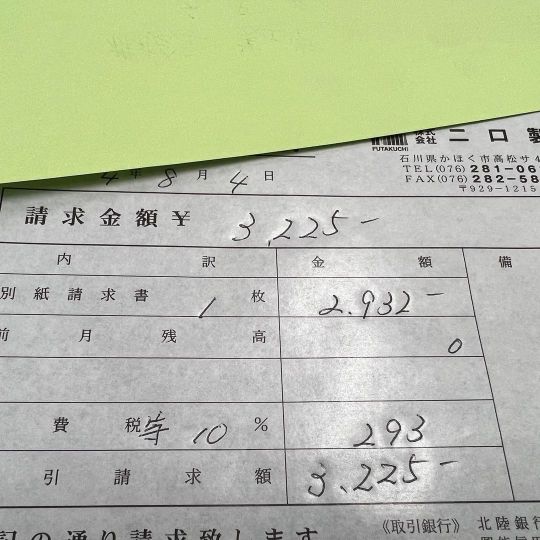 株式会社 二口製
FUTAKUCHI
石川県かほく市高松サ4
TEL(076)281-06
FAX(076)282-58
〒929-1215
4年8月4日
請求金額¥ 3,225-
内訳 金額 備
別紙請求書 1枚 2.932-
前月残高 0
費税等 10% 293
引請求額 3.225-
記の通り請求致します
《取引銀行》 北陸銀行